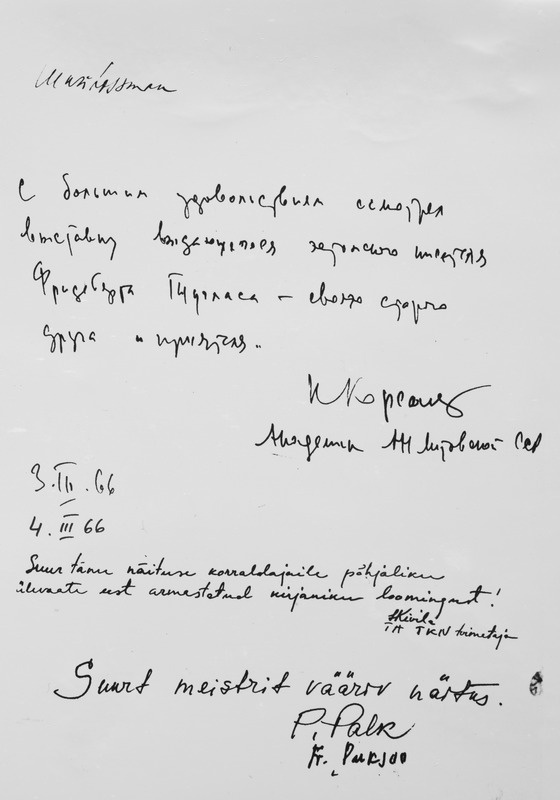 С большим удовольствием осмотрел
выставку выдающегося эстонского писателя
Фридеберта Тугласа – своего старого
друга и приятеля.
Корсакас
Академик АН Литовской ССР
3.III.66
4.III 66
Suur tänu näituse korraldajaile põhjaliku
ülevaate eest armastatud kirjaniku loomingust!
Kivila
TA TKN toimetaja
Suurt meistrit vääriv näitus.
P. Palk